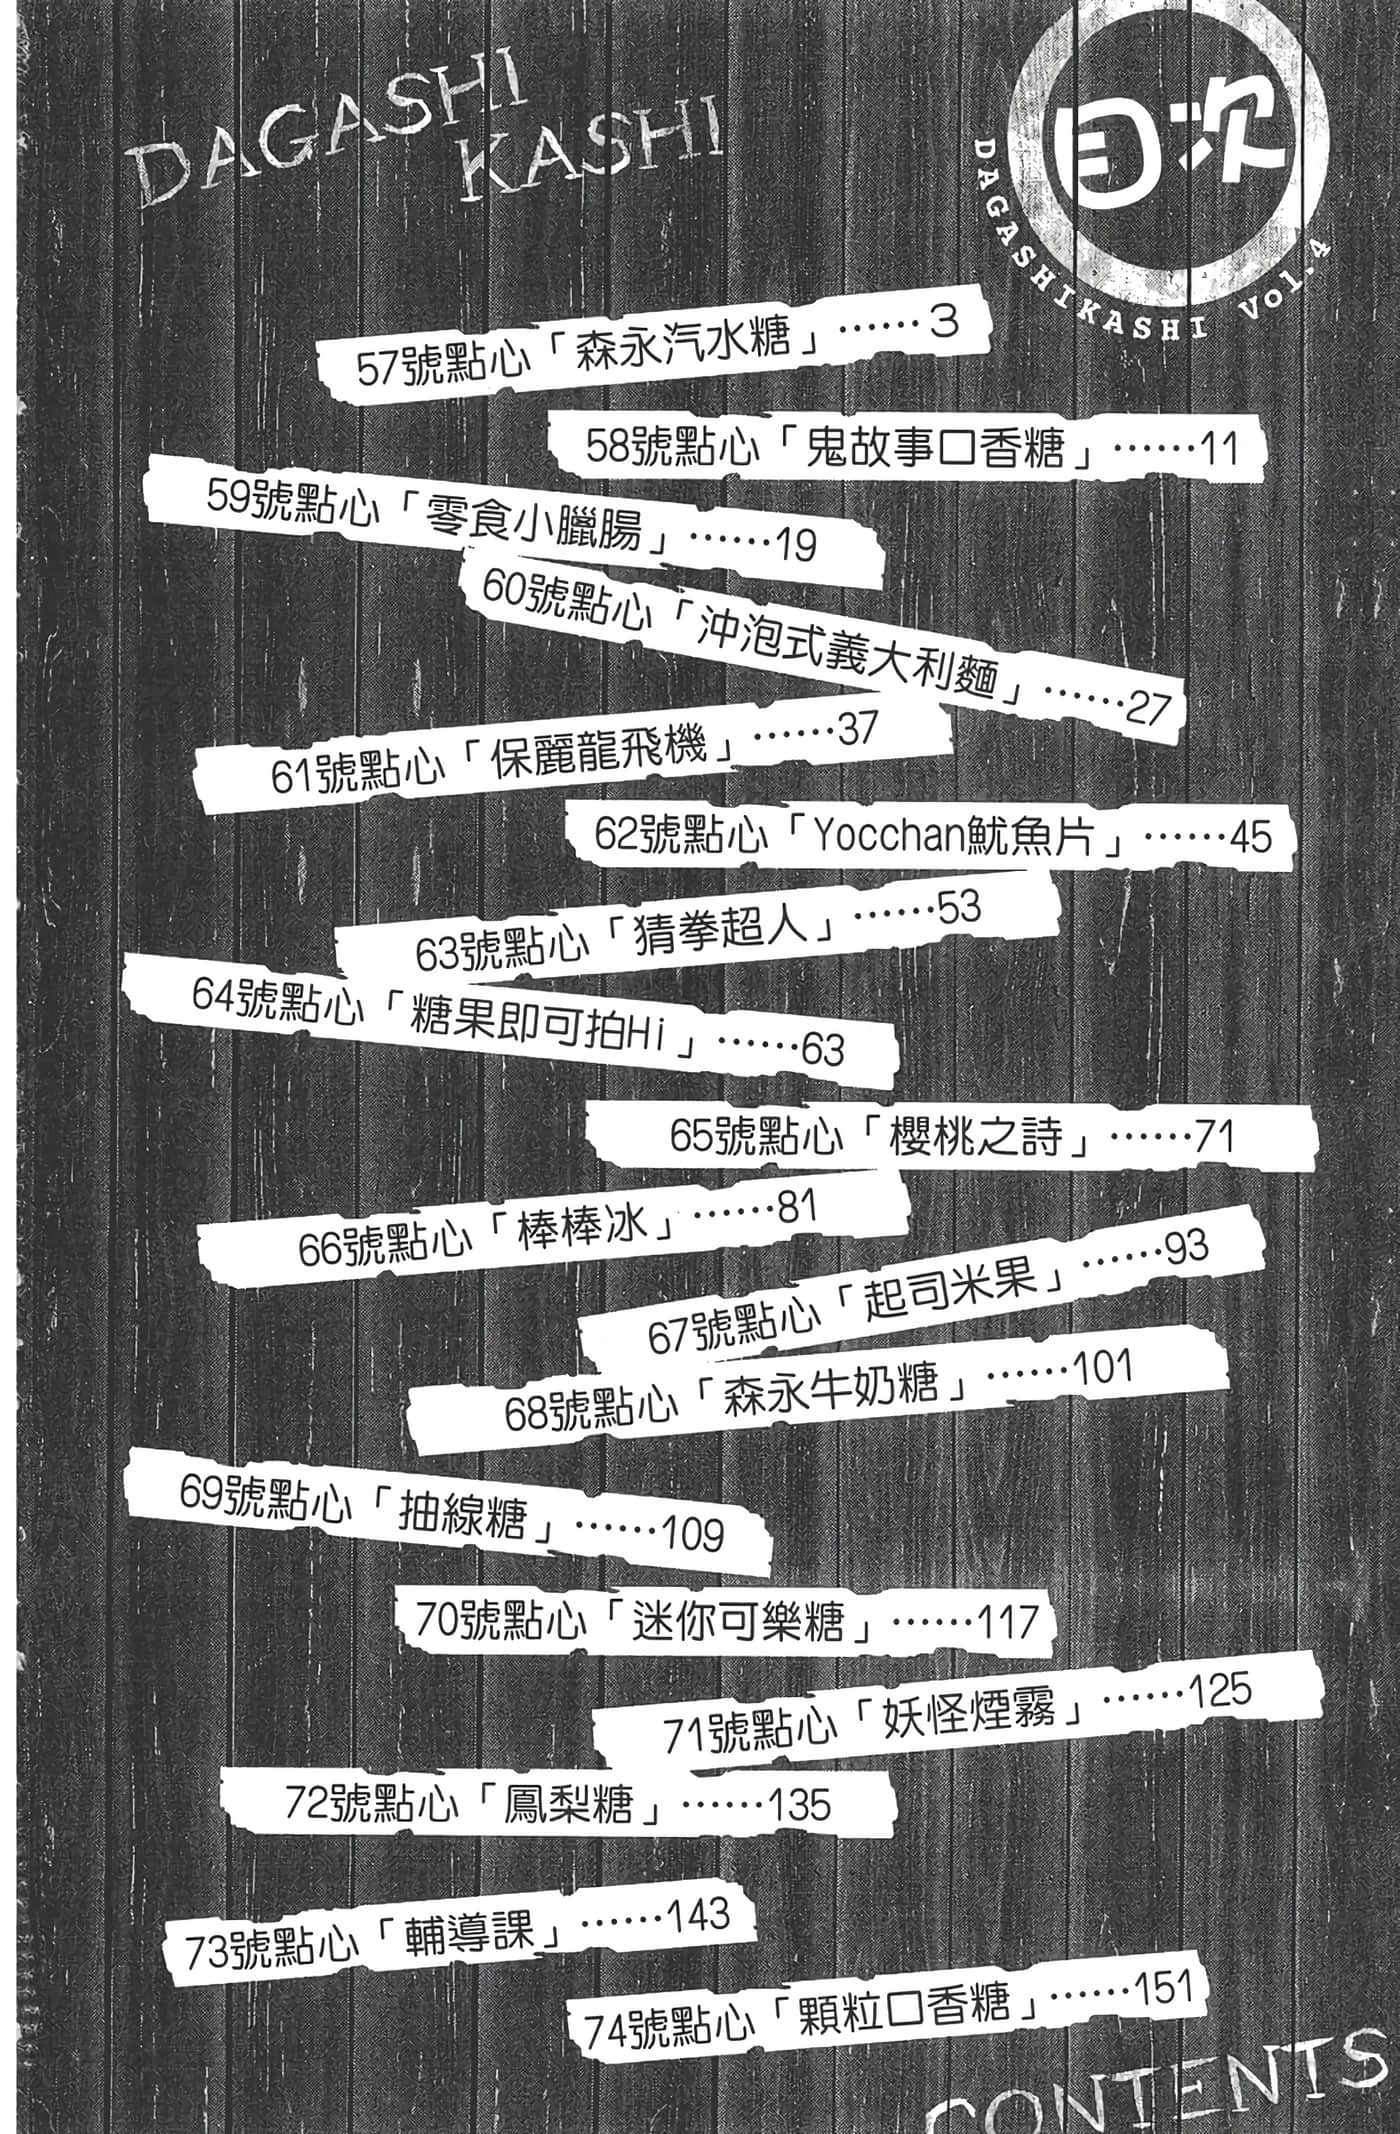 DAGASHI
KASHI
目次
DAGASHIKASHI Vol.4
57號點心「森永汽水糖」⋯⋯3
58號點心「鬼故事口香糖」⋯⋯11
59號點心「零食小臘腸」⋯⋯19
60號點心「沖泡式義大利麵」⋯⋯27
61號點心「保麗龍飛機」⋯⋯37
62號點心「Yocchan魷魚片」⋯⋯45
63號點心「猜拳超人」⋯⋯53
64號點心「糖果即可拍Hi」⋯⋯63
65號點心「櫻桃之詩」⋯⋯71
66號點心「棒棒冰」⋯⋯81
67號點心「起司米果」⋯⋯93
68號點心「森永牛奶糖」⋯⋯101
69號點心「抽線糖」⋯⋯109
70號點心「迷你可樂糖」⋯⋯117
71號點心「妖怪煙霧」⋯⋯125
72號點心「鳳梨糖」⋯⋯135
73號點心「輔導課」⋯⋯143
74號點心「顆粒口香糖」⋯⋯151
CONTENTS